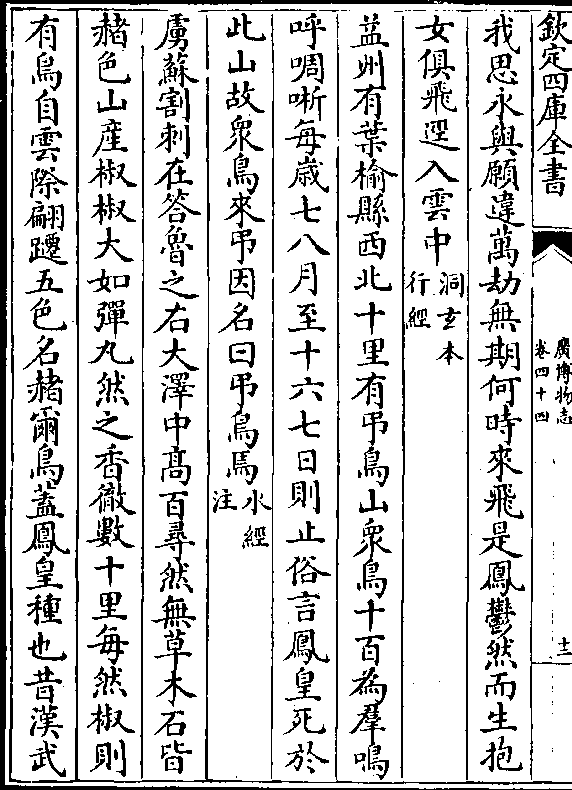 欽定四庫全書
廣博物志
卷四十四
十二
我思永與願違萬劫無期何時來飛是鳳鬱然而生抱
女俱飛逕入雲中洞玄本行經
益州有葉榆縣西北十里有弔鳥山衆鳥十百為羣鳴
呼啁哳每歲七八月至十六七日則止俗言鳳皇死於
此山故衆鳥來弔因名曰弔鳥焉水經注
虜蘇割刺在答魯之右大澤中高百尋然無草木石皆
赭色山産椒椒大如彈丸然之香徹數十里每然椒則
有鳥自雲際翩躚五色名赭爾鳥蓋鳳皇種也昔漢武